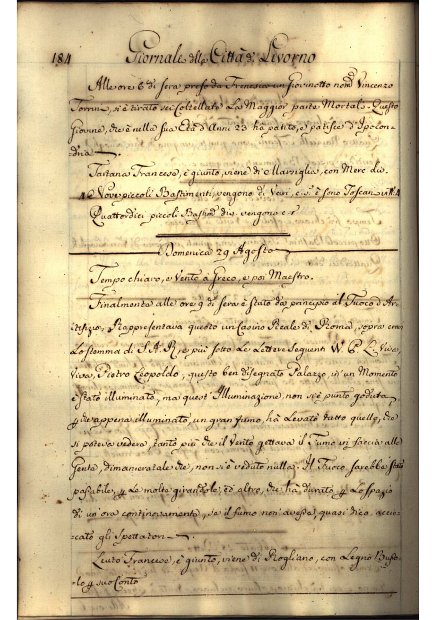 184 Giornale della Città di Livorno
Alle ore 6 di sera preso da Frenesia un Giovinotto nomto Vincenzo
Torrini, si è tirato sei Coltellate La Maggior parte Mortali. Questo
Giovine, che è nella sua Età d'Anni 23 ha patito, e patisce d'Ipocon-
dria
Tartana Francese, è giunto, viene di Marsiglia, con Merc. div.
Nove piccoli Bastimenti, vengono di Veri, e vi è sono Toscani
Quattordici piccoli Bastim. div. vengono
Domenica 29 Agosto
Tempo chiaro, e Vento a Greco, e poi Maestro.
Finalmente alle ore 9 di sera è stato dato principio al Fuoco d'Ar-
tifizio, Rappresentava questo un Casino Reale di Roma, sopra
Lo stemma di S.A.R., e più sotto Le Lettere Seguenti W. P. L. Viva,
Viva, Pietro Leopoldo, questo ben disegnato Palazzo, in un Momento
è stato illuminato, ma quest'Illuminazione, non si è punto goduta
che appena illuminato, un gran fumo, ha Levato tutto quello, che
si poteva vedere, tanto più che il Vento gettava il Fumo in faccia alle
Genti, dimanieratale che, non si è veduto nulla. Il Fuoco, sarebbe stato
passabile, p Le molte girandole, ed altro, che ha durato p Lo spazio
di un'ora continovamente, se il fumo non avesse, quasi dico, accie-
cato gli Spettatori
Leuto Francese, è giunto, viene di Rogliano, con Legno Busso
lo p suo Conto